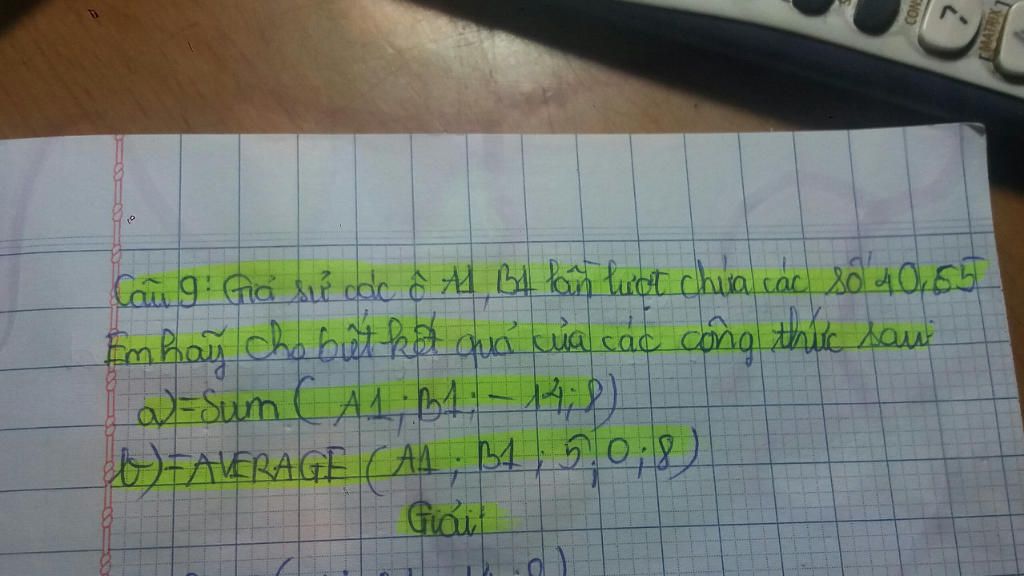 CON
?
[MATRIX]
Câu 9: Giả sử các ô A1, B1 lần lượt chứa các số 40, 55
Em hãy cho biết kết quả của các công thức sau:
a) =Sum ( A1; B1; - 14; 8)
b) =AVERAGE (A1; B1; 5; 0; 8)
Giải: